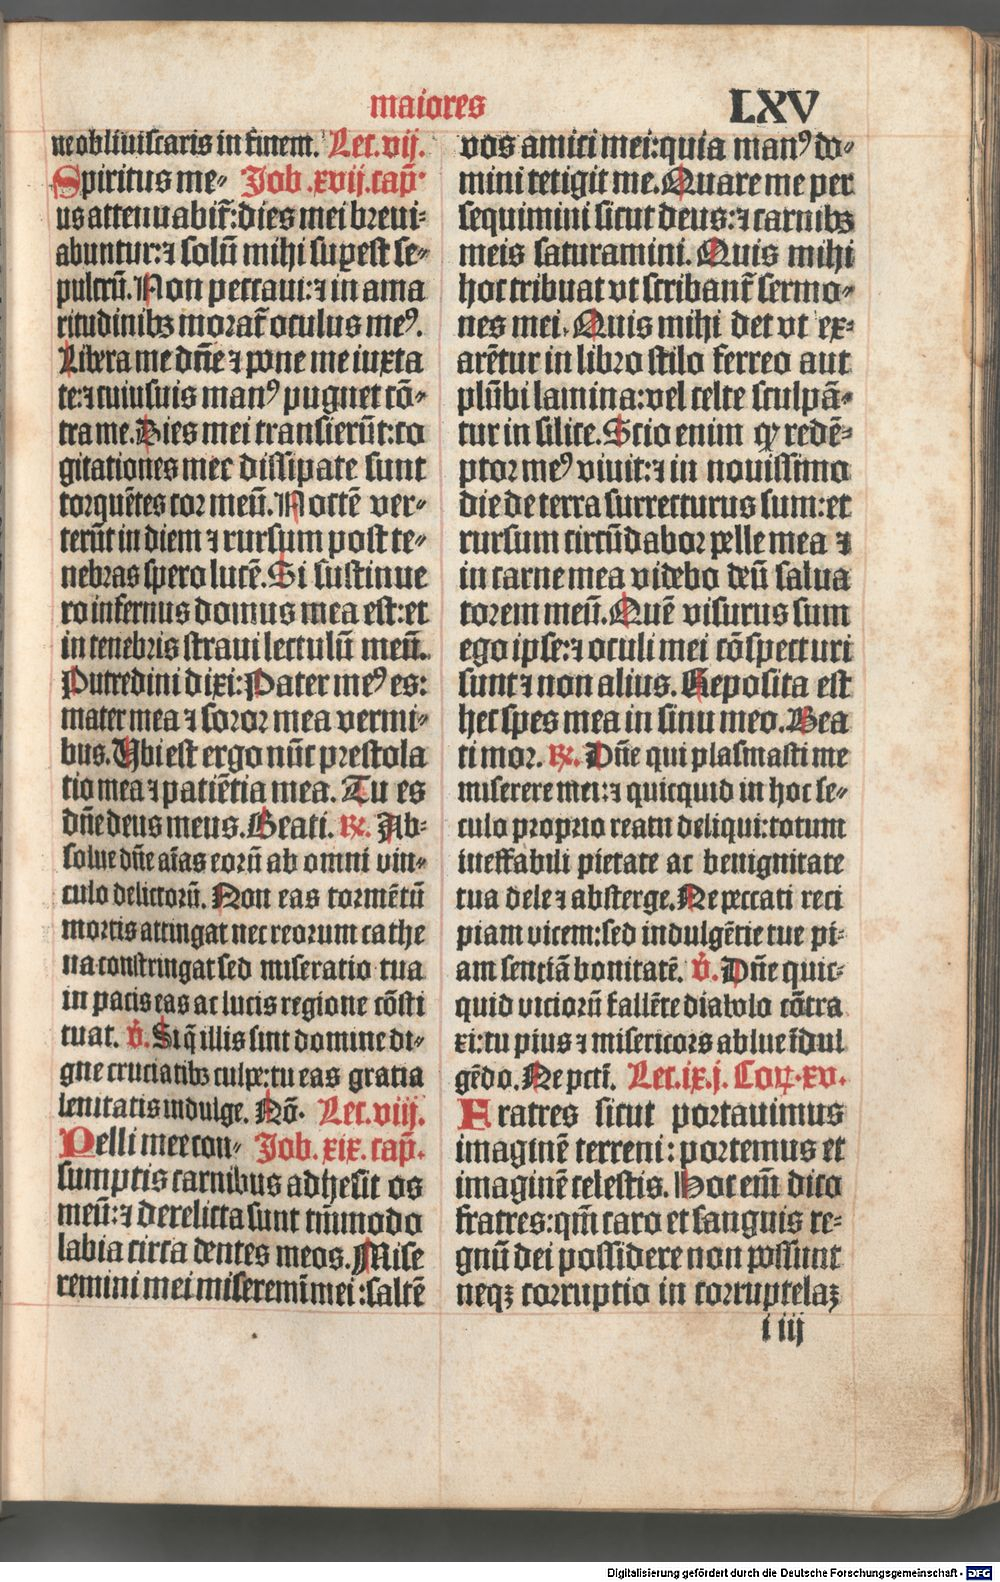 maiores
LXV
ne obliuiscaris in finem. Lec. vij.
Spiritus me⸗ Job .xvij. cap̄.
us attenuabit̄: dies mei breui⸗
abuntur: ⁊ solū mihi suꝑest se⸗
pulcrū. Non peccaui: ⁊ in ama
ritudinibꝫ morat̄ oculus meꝰ.
Libera me dn̄e ⁊ pone me iuxta
te: ⁊ cuiusuis manꝰ pugnet cō⸗
tra me. Dies mei transierūt: co
gitationes mee dissipate sunt
torquētes cor meū. Noctē ver⸗
terūt in diem ⁊ rursum post te⸗
nebras spero lucē. Si sustinue
ro infernus domus mea est: et
in tenebris straui lectulū meū.
Putredini dixi: Pater meꝰ es:
mater mea ⁊ soror mea vermi⸗
bus. Ubi est ergo nūc prestola
tio mea ⁊ patiētia mea. Tu es
dn̄e deus meus. Beati. ℞. Ab⸗
solue dn̄e aīas eorū ab omni vin⸗
culo delictorū. Non eas tormētū
mortis attingat nec reorum cathe
na constringat sed miseratio tua
in pacis eas ac lucis regione cōsti
tuat. v̄. Si q̄ illis sint domine di⸗
gne cruciatibꝫ culpe: tu eas gratia
lenitatis indulge. Nō. Lec. viij.
Pelli mee con⸗ Job. xix. cap̄.
sumptis carnibus adhesit os
meū: ⁊ derelicta sunt tm̄modo
labia circa dentes meos. Mise
remini mei miseremī mei: saltē
vos amici mei: quia manꝰ do⸗
mini tetigit me. Quare me per
sequimini sicut deus: ⁊ carnibꝫ
meis saturamini. Quis mihi
hoc tribuat vt scribant̄ sermo⸗
nes mei. Quis mihi det vt ex⸗
arētur in libro stilo ferreo aut
plūbi lamina: vel celte sculpā⸗
tur in silice. Scio enim ꝙ redē⸗
ptor meꝰ viuit: ⁊ in nouissimo
die de terra surrecturus sum: et
rursum circūdabor pelle mea ⁊
in carne mea videbo deū salua
torem meū. Quē visurus sum
ego ipse: ⁊ oculi mei cōspecturi
sunt ⁊ non alius. Reposita est
hec spes mea in sinu meo. Bea
ti mor. ℞. Dn̄e qui plasmasti me
miserere mei: ⁊ quicquid in hoc se⸗
culo proprio reatu deliqui: totum
ineffabili pietate ac benignitate
tua dele ⁊ absterge. Ne peccati reci
piam vicem: sed indulgētie tue pi⸗
am sentiā bonitatē. v̄. Dn̄e quic⸗
quid viciorū fallēte diabolo cōtra
xi: tu pius ⁊ misericors ablue īdul
gēdo. Ne pcti̅. Lec. ix. j. Coꝝ. xv.
Fratres sicut portauimus
imaginē terreni: portemus et
imaginē celestis. Hoc em̄ dico
fratres: qm̄ caro et sanguis re⸗
gnū dei possidere non possunt
neqꝫ corruptio in corruptelaꝫ
i iij
Digitalisierung gefördert durch die Deutsche Forschungsgemeinschaft - DFG